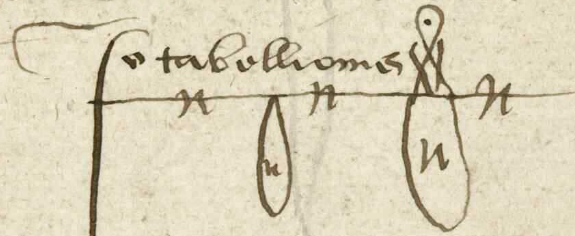 Se tabellionis
n n n
n n